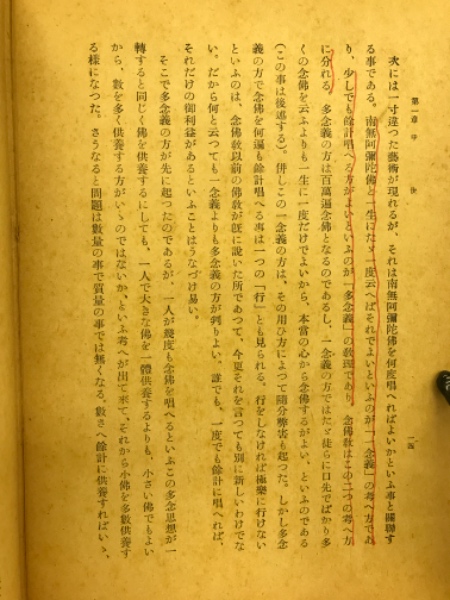 第一章 中世
一四
次には一寸違つた藝術が現れるが、それは南無阿彌陀佛を何度唱へればよいかといふ事と關聯す
る事である。南無阿彌陀佛と一生にたゞ一度云へばそれでよいといふのが「一念義」の考へ方であ
り、少しでも餘計唱へる方がよいといふのが「多念義」の敎理であり、念佛敎はこの二つの考へ方
に分れる。多念義の方は百萬遍念佛となるのであるし、一念義の方ではたゞ徒らに口先でばかり多
くの念佛を云ふよりも一生に一度だけでよいから、本當の心から念佛するがよい、といふのである
(この事は後述する)。併しこの一念義の方は、その用ひ方によつて隨分弊害も起つた。しかし多念
義の方で念佛を何遍も餘計唱へる事は一つの「行」とも見られる。行をしなければ極樂に行けない
といふのは、念佛敎以前の佛敎が旣に說いた所であつて、今更それを言つても別に新しいわけでな
い。だから何と云つても一念義よりも多念義の方が判りよい。誰でも、一度でも餘計に唱へれば、
それだけの御利益があるといふことはうなづけ易い。
そこで多念義の方が先に起つたのであるが、一人が幾度も念佛を唱へるといふこの多念思想が一
轉すると同じく佛を供養するにしても、一人で大きな佛を一體供養するよりも、小さい佛でもよい
から、數を多く供養する方がいゝのではないか、といふ考へが出て來て、それから小佛を多數供養す
る樣になつた。さうなると問題は數量の事で質量の事では無くなる。數さへ餘計に供養すればいゝ、